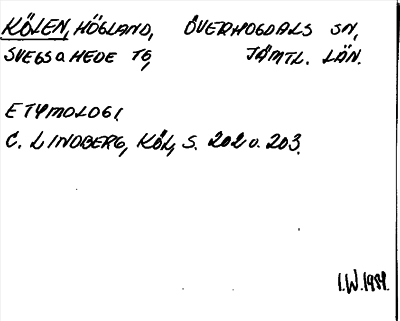 KÖLEN, HÖGLAND, ÖVERHOGDALS SN,
SVEGS O HEDE TG, JÄMTL. LÄN.
ETYMOLOGI.
C. LINDBERG, KÖL, S. 202 o. 203.
I.W. 1984.